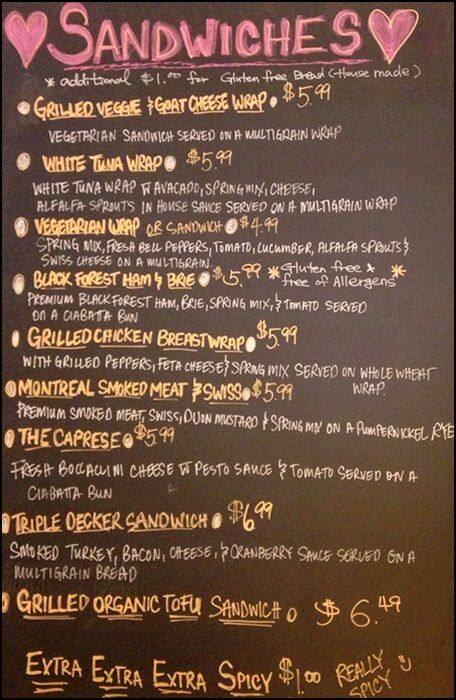 SANDWICHES
* additional $1.00 for Gluten free Bread (House made)
GRILLED VEGGIE & GOAT CHEESE WRAP $5.99
VEGETARIAN SANDWICH SERVED ON A MULTIGRAIN WRAP
WHITE TUNA WRAP $5.99
WHITE TUNA WRAP W AVACADO, SPRING MIX, CHEESE,
ALFALFA SPROUTS IN HOUSE SAUCE SERVED ON A MULTIGRAIN WRAP
VEGETARIAN WRAP OR SANDWICH $4.99
SPRING MIX, FRESH BELL PEPPERS, TOMATO, CUCUMBER, ALFALFA SPROUTS &
SWISS CHEESE ON A MULTIGRAIN
BLACK FOREST HAM & BRIE $5.99 * Gluten free *
free of Allergens *
PREMIUM BLACK FOREST HAM, BRIE, SPRING MIX, & TOMATO SERVED
ON A CIABATTA BUN
GRILLED CHICKEN BREAST WRAP $5.99
WITH GRILLED PEPPERS, FETA CHEESE & SPRING MIX SERVED ON WHOLE WHEAT
WRAP.
MONTREAL SMOKED MEAT & SWISS $5.99
PREMIUM SMOKED MEAT, SWISS, DIJON MUSTARD & SPRING MIX ON A PUMPERNICKEL RYE
THE CAPRESE $5.99
FRESH BOCCACINI CHEESE W PESTO SAUCE & TOMATO SERVED ON A
CIABATTA BUN
TRIPLE DECKER SANDWICH $6.99
SMOKED TURKEY, BACON, CHEESE, & CRANBERRY SAUCE SERVED ON A
MULTIGRAIN BREAD
GRILLED ORGANIC TOFU SANDWICH $6.49
EXTRA EXTRA EXTRA SPICY $1.00 REALLY
SPICY